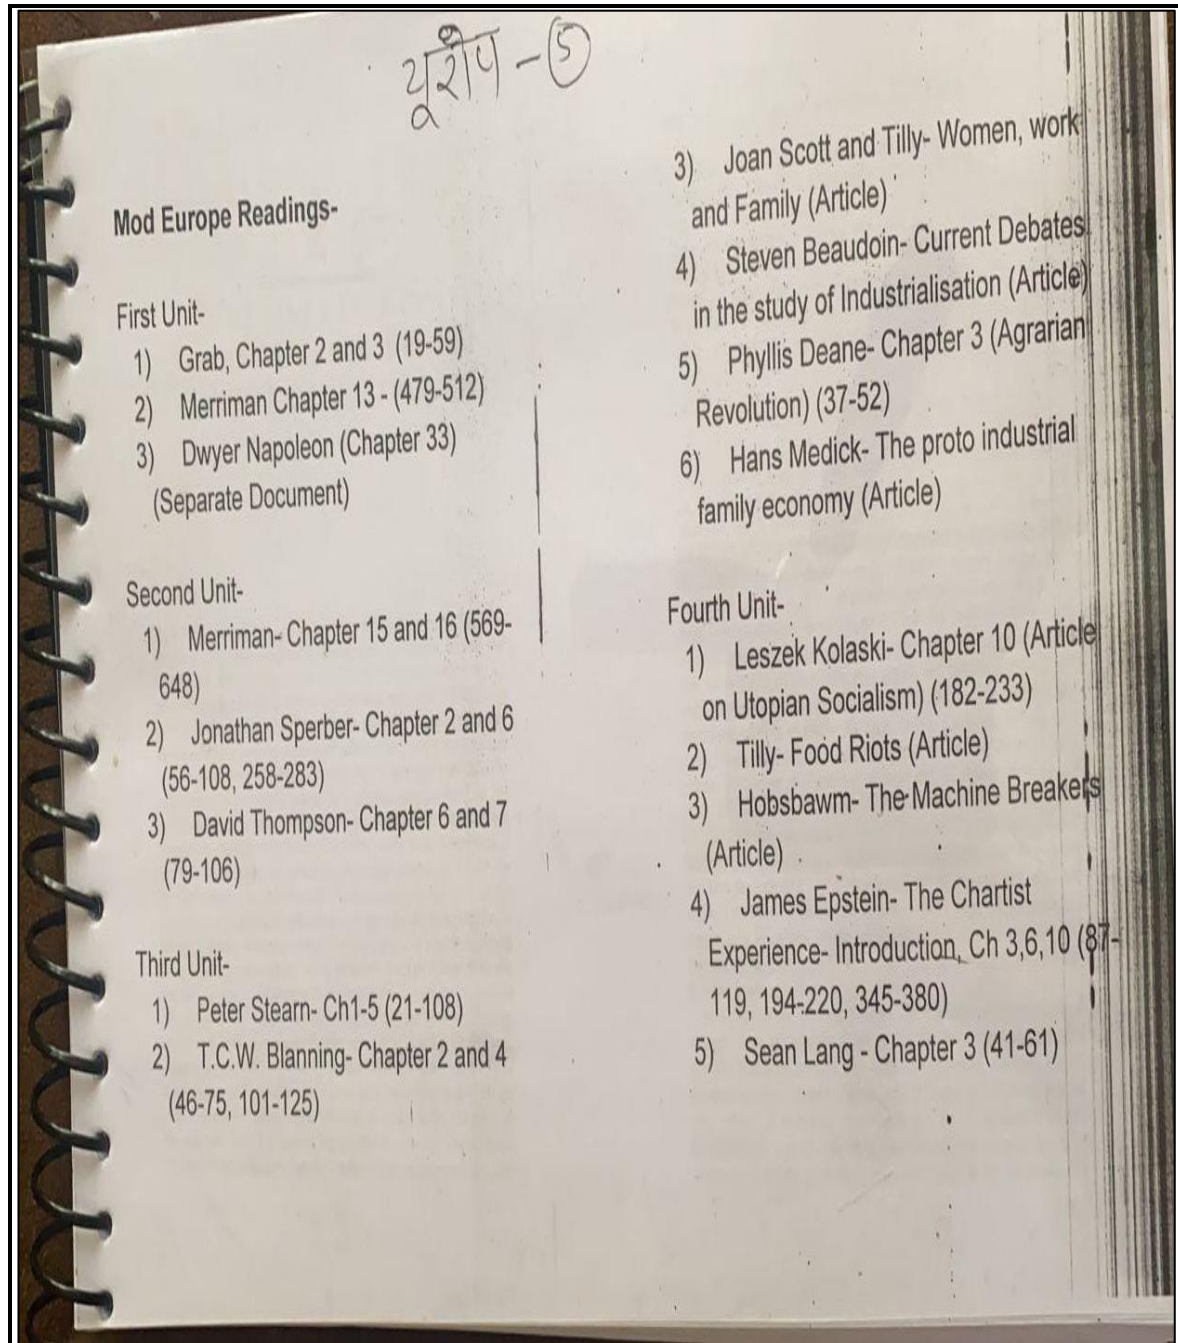 यूरोप - ⑤
Mod Europe Readings-
First Unit-
1) Grab, Chapter 2 and 3 (19-59)
2) Merriman Chapter 13 - (479-512)
3) Dwyer Napoleon (Chapter 33)
(Separate Document)
Second Unit-
1) Merriman- Chapter 15 and 16 (569-
648)
2) Jonathan Sperber- Chapter 2 and 6
(56-108, 258-283)
3) David Thompson- Chapter 6 and 7
(79-106)
Third Unit-
1) Peter Stearn- Ch1-5 (21-108)
2) T.C.W. Blanning- Chapter 2 and 4
(46-75, 101-125)
3) Joan Scott and Tilly- Women, work
and Family (Article)
4) Steven Beaudoin- Current Debates
in the study of Industrialisation (Article)
5) Phyllis Deane- Chapter 3 (Agrarian
Revolution) (37-52)
6) Hans Medick- The proto industrial
family economy (Article)
Fourth Unit-
1) Leszek Kolaski- Chapter 10 (Article
on Utopian Socialism) (182-233)
2) Tilly- Food Riots (Article)
3) Hobsbawm- The Machine Breakers
(Article)
4) James Epstein- The Chartist
Experience- Introduction, Ch 3,6,10 (87-
119, 194-220, 345-380)
5) Sean Lang - Chapter 3 (41-61)